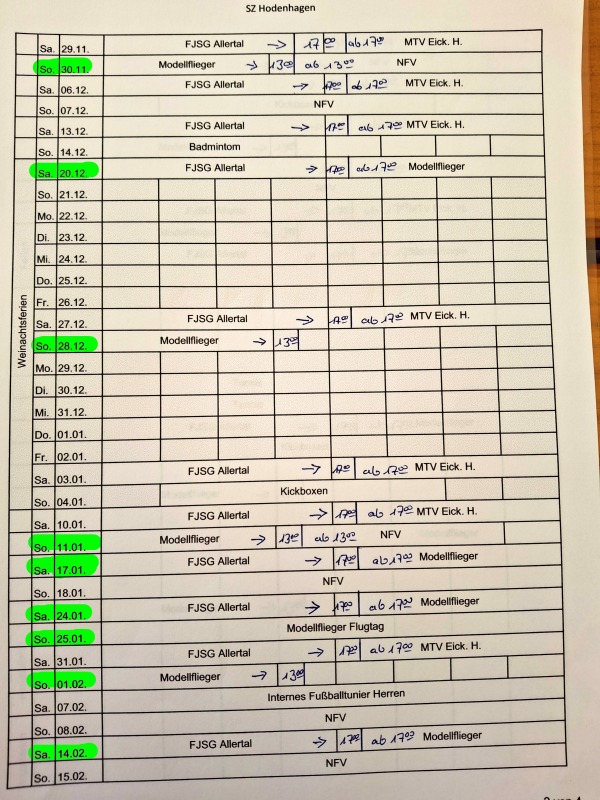 SZ Hodenhagen
Sa. 29.11. FJSG Allertal → 17 00 ab 17 00 MTV Eick. H.
So. 30.11. Modellflieger → 13 00 ab 13 00 NFV
Sa. 06.12. FJSG Allertal → 17 00 ab 17 00 MTV Eick. H.
So. 07.12. NFV
Sa. 13.12. FJSG Allertal → 17 00 ab 17 00 MTV Eick. H.
So. 14.12. Badmintom
Sa. 20.12. FJSG Allertal → 17 00 ab 17 00 Modellflieger
Weinachtsferien
So. 21.12.
Mo. 22.12.
Di. 23.12.
Mi. 24.12.
Do. 25.12.
Fr. 26.12.
Sa. 27.12. FJSG Allertal → 17 00 ab 17 00 MTV Eick. H.
So. 28.12. Modellflieger → 13 00
Mo. 29.12.
Di. 30.12.
Mi. 31.12.
Do. 01.01.
Fr. 02.01.
Sa. 03.01. FJSG Allertal → 17 00 ab 17 00 MTV Eick. H.
So. 04.01. Kickboxen
Sa. 10.01. FJSG Allertal → 17 00 ab 17 00 MTV Eick. H.
So. 11.01. Modellflieger → 13 00 ab 13 00 NFV
Sa. 17.01. FJSG Allertal → 17 00 ab 17 00 Modellflieger
So. 18.01. NFV
Sa. 24.01. FJSG Allertal → 17 00 ab 17 00 Modellflieger
So. 25.01. Modellflieger Flugtag
Sa. 31.01. FJSG Allertal → 17 00 ab 17 00 MTV Eick. H.
So. 01.02. Modellflieger → 13 00
Sa. 07.02. Internes Fußballtunier Herren
So. 08.02. NFV
Sa. 14.02. FJSG Allertal → 17 00 ab 17 00 Modellflieger
So. 15.02. NFV